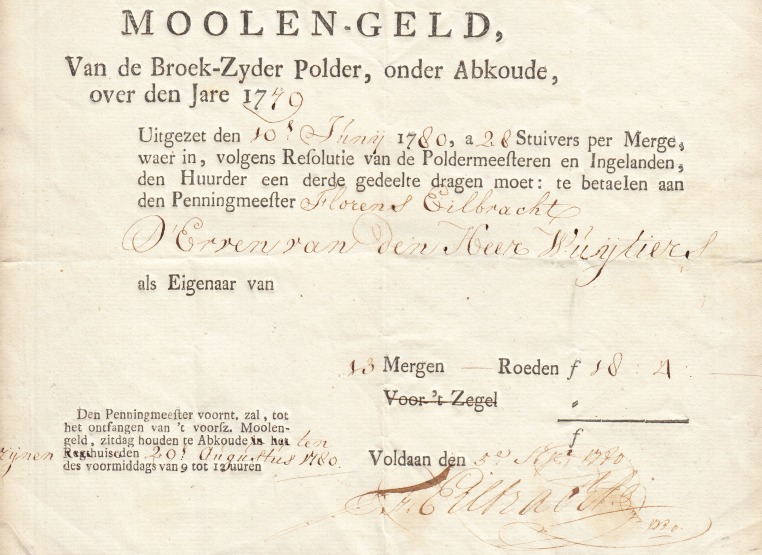 MOOLEN-GELD,
Van de Broek-Zyder Polder, onder Abkoude,
over den Jare 1779
Uitgezet den 10e Juny 1780, a 28 Stuivers per Merge,
waer in, volgens Resolutie van de Poldermeesteren en Ingelanden,
den Huurder een derde gedeelte dragen moet: te betaelen aan
den Penningmeester Florens Eilbracht
D'Erven van den Heer Wuijtiers
als Eigenaar van
13 Mergen — Roeden f 18 : 4 :
Voor 't Zegel „
f
Den Penningmeester voornt, zal, tot
het ontfangen van 't voorsz. Moolen-
geld, zitdag houden te Abkoude in het ten
zijnen Regthuise den 20e Augustus 1780
des voormiddags van 9 tot 12 uuren
Voldaan den 5e Sept 1780
F. Eilbracht
1780.